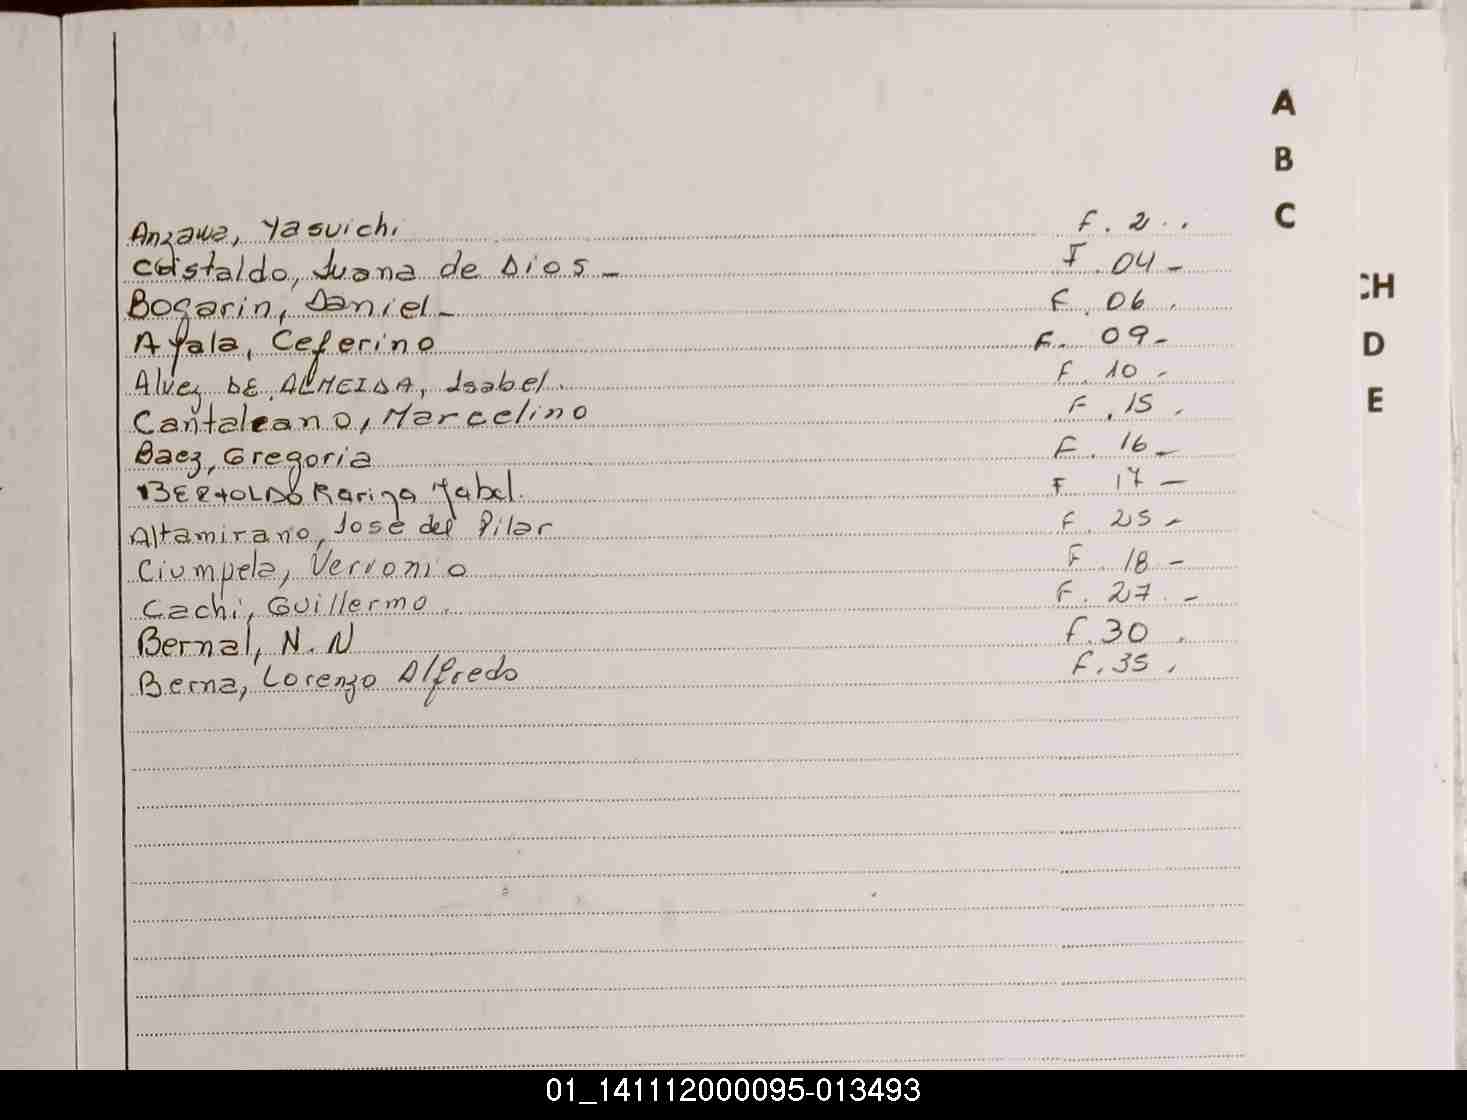 A
B
C
Anzawa, Yasuichi F. 2..
Castaldo, Juana de Dios - F. 04 -
Bogarin, Daniel - F. 06.
Ayala, Ceferino F. 09 -
Alvez DE ALMEIDA, Isabel. F. 10 -
Cantaleano, Marcelino F. 15.
Baez, Gregoria F. 16 -
BERTOLDO Karina Mabel. F 17 -
Altamirano, José del Pilar F. 25 -
Ciumpela, F. 18 -
Cachi, Guillermo. F. 27. -
Bernal, N. N F. 30.
Berna, Lorenzo Alfredo F. 35.
CH
D
E
01_141112000095-013493